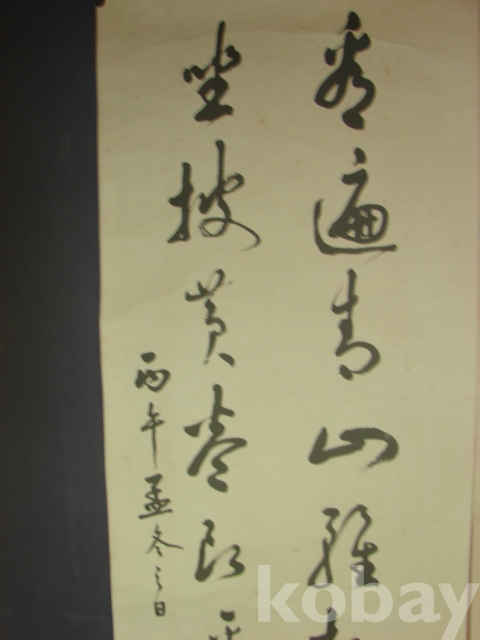 看遍青山雖
坐披黃卷即
丙午孟冬之日
kobay